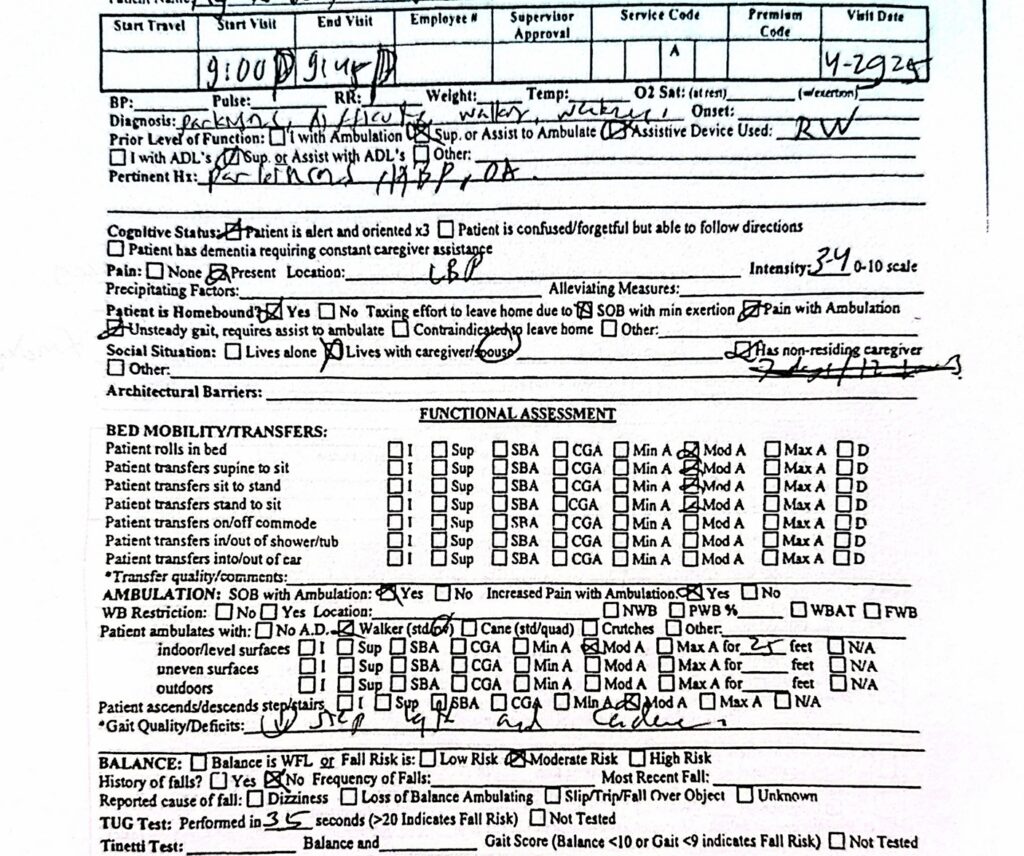 Start Travel Start Visit End Visit Employee # Supervisor Approval Service Code Premium Code Visit Date
9:00 P 9:45 P A 4-29-25
BP: Pulse: RR: Weight: Temp: O2 Sat: (at rest) (w/exertion)
Diagnosis: Onset:
Prior Level of Function: ☐ I with Ambulation ☒ Sup. or Assist to Ambulate ☒ Assistive Device Used: RW
☐ I with ADL's ☒ Sup. or Assist with ADL's ☐ Other:
Pertinent Hx: HBP, OA.
Cognitive Status: ☒ Patient is alert and oriented x3 ☐ Patient is confused/forgetful but able to follow directions
☐ Patient has dementia requiring constant caregiver assistance
Pain: ☐ None ☒ Present Location: LBP Intensity: 3-4 0-10 scale
Precipitating Factors: Alleviating Measures:
Patient is Homebound? ☒ Yes ☐ No Taxing effort to leave home due to ☒ SOB with min exertion ☒ Pain with Ambulation
☒ Unsteady gait, requires assist to ambulate ☐ Contraindicated to leave home ☐ Other:
Social Situation: ☐ Lives alone ☒ Lives with caregiver/spouse ☒ Has non-residing caregiver
☐ Other:
Architectural Barriers:
FUNCTIONAL ASSESSMENT
BED MOBILITY/TRANSFERS:
Patient rolls in bed ☐ I ☐ Sup ☐ SBA ☐ CGA ☐ Min A ☒ Mod A ☐ Max A ☐ D
Patient transfers supine to sit ☐ I ☐ Sup ☐ SBA ☐ CGA ☐ Min A ☒ Mod A ☐ Max A ☐ D
Patient transfers sit to stand ☐ I ☐ Sup ☐ SBA ☐ CGA ☐ Min A ☒ Mod A ☐ Max A ☐ D
Patient transfers stand to sit ☐ I ☐ Sup ☐ SBA ☐ CGA ☐ Min A ☒ Mod A ☐ Max A ☐ D
Patient transfers on/off commode ☐ I ☐ Sup ☐ SBA ☐ CGA ☐ Min A ☐ Mod A ☐ Max A ☐ D
Patient transfers in/out of shower/tub ☐ I ☐ Sup ☐ SBA ☐ CGA ☐ Min A ☐ Mod A ☐ Max A ☐ D
Patient transfers into/out of car ☐ I ☐ Sup ☐ SBA ☐ CGA ☐ Min A ☐ Mod A ☐ Max A ☐ D
*Transfer quality/comments:
AMBULATION: SOB with Ambulation: ☒ Yes ☐ No Increased Pain with Ambulation: ☒ Yes ☐ No
WB Restriction: ☐ No ☐ Yes Location: ☐ NWB ☐ PWB % ☐ WBAT ☐ FWB
Patient ambulates with: ☐ No A.D. ☒ Walker ☐ Cane (std/quad) ☐ Crutches ☐ Other:
indoor/level surfaces ☐ I ☐ Sup ☐ SBA ☐ CGA ☐ Min A ☒ Mod A ☐ Max A for 25 feet ☐ N/A
uneven surfaces ☐ I ☐ Sup ☐ SBA ☐ CGA ☐ Min A ☐ Mod A ☐ Max A for feet ☐ N/A
outdoors ☐ I ☐ Sup ☐ SBA ☐ CGA ☐ Min A ☐ Mod A ☐ Max A for feet ☐ N/A
Patient ascends/descends step/stairs ☐ I ☐ Sup ☐ SBA ☐ CGA ☐ Min A ☒ Mod A ☐ Max A ☐ N/A
*Gait Quality/Deficits: ↓ step and
BALANCE: ☐ Balance is WFL or Fall Risk is: ☐ Low Risk ☒ Moderate Risk ☐ High Risk
History of falls? ☐ Yes ☒ No Frequency of Falls: Most Recent Fall:
Reported cause of fall: ☐ Dizziness ☐ Loss of Balance Ambulating ☐ Slip/Trip/Fall Over Object ☐ Unknown
TUG Test: Performed in 35 seconds (>20 Indicates Fall Risk) ☐ Not Tested
Tinetti Test: Balance and Gait Score (Balance <10 or Gait <9 indicates Fall Risk) ☐ Not Tested